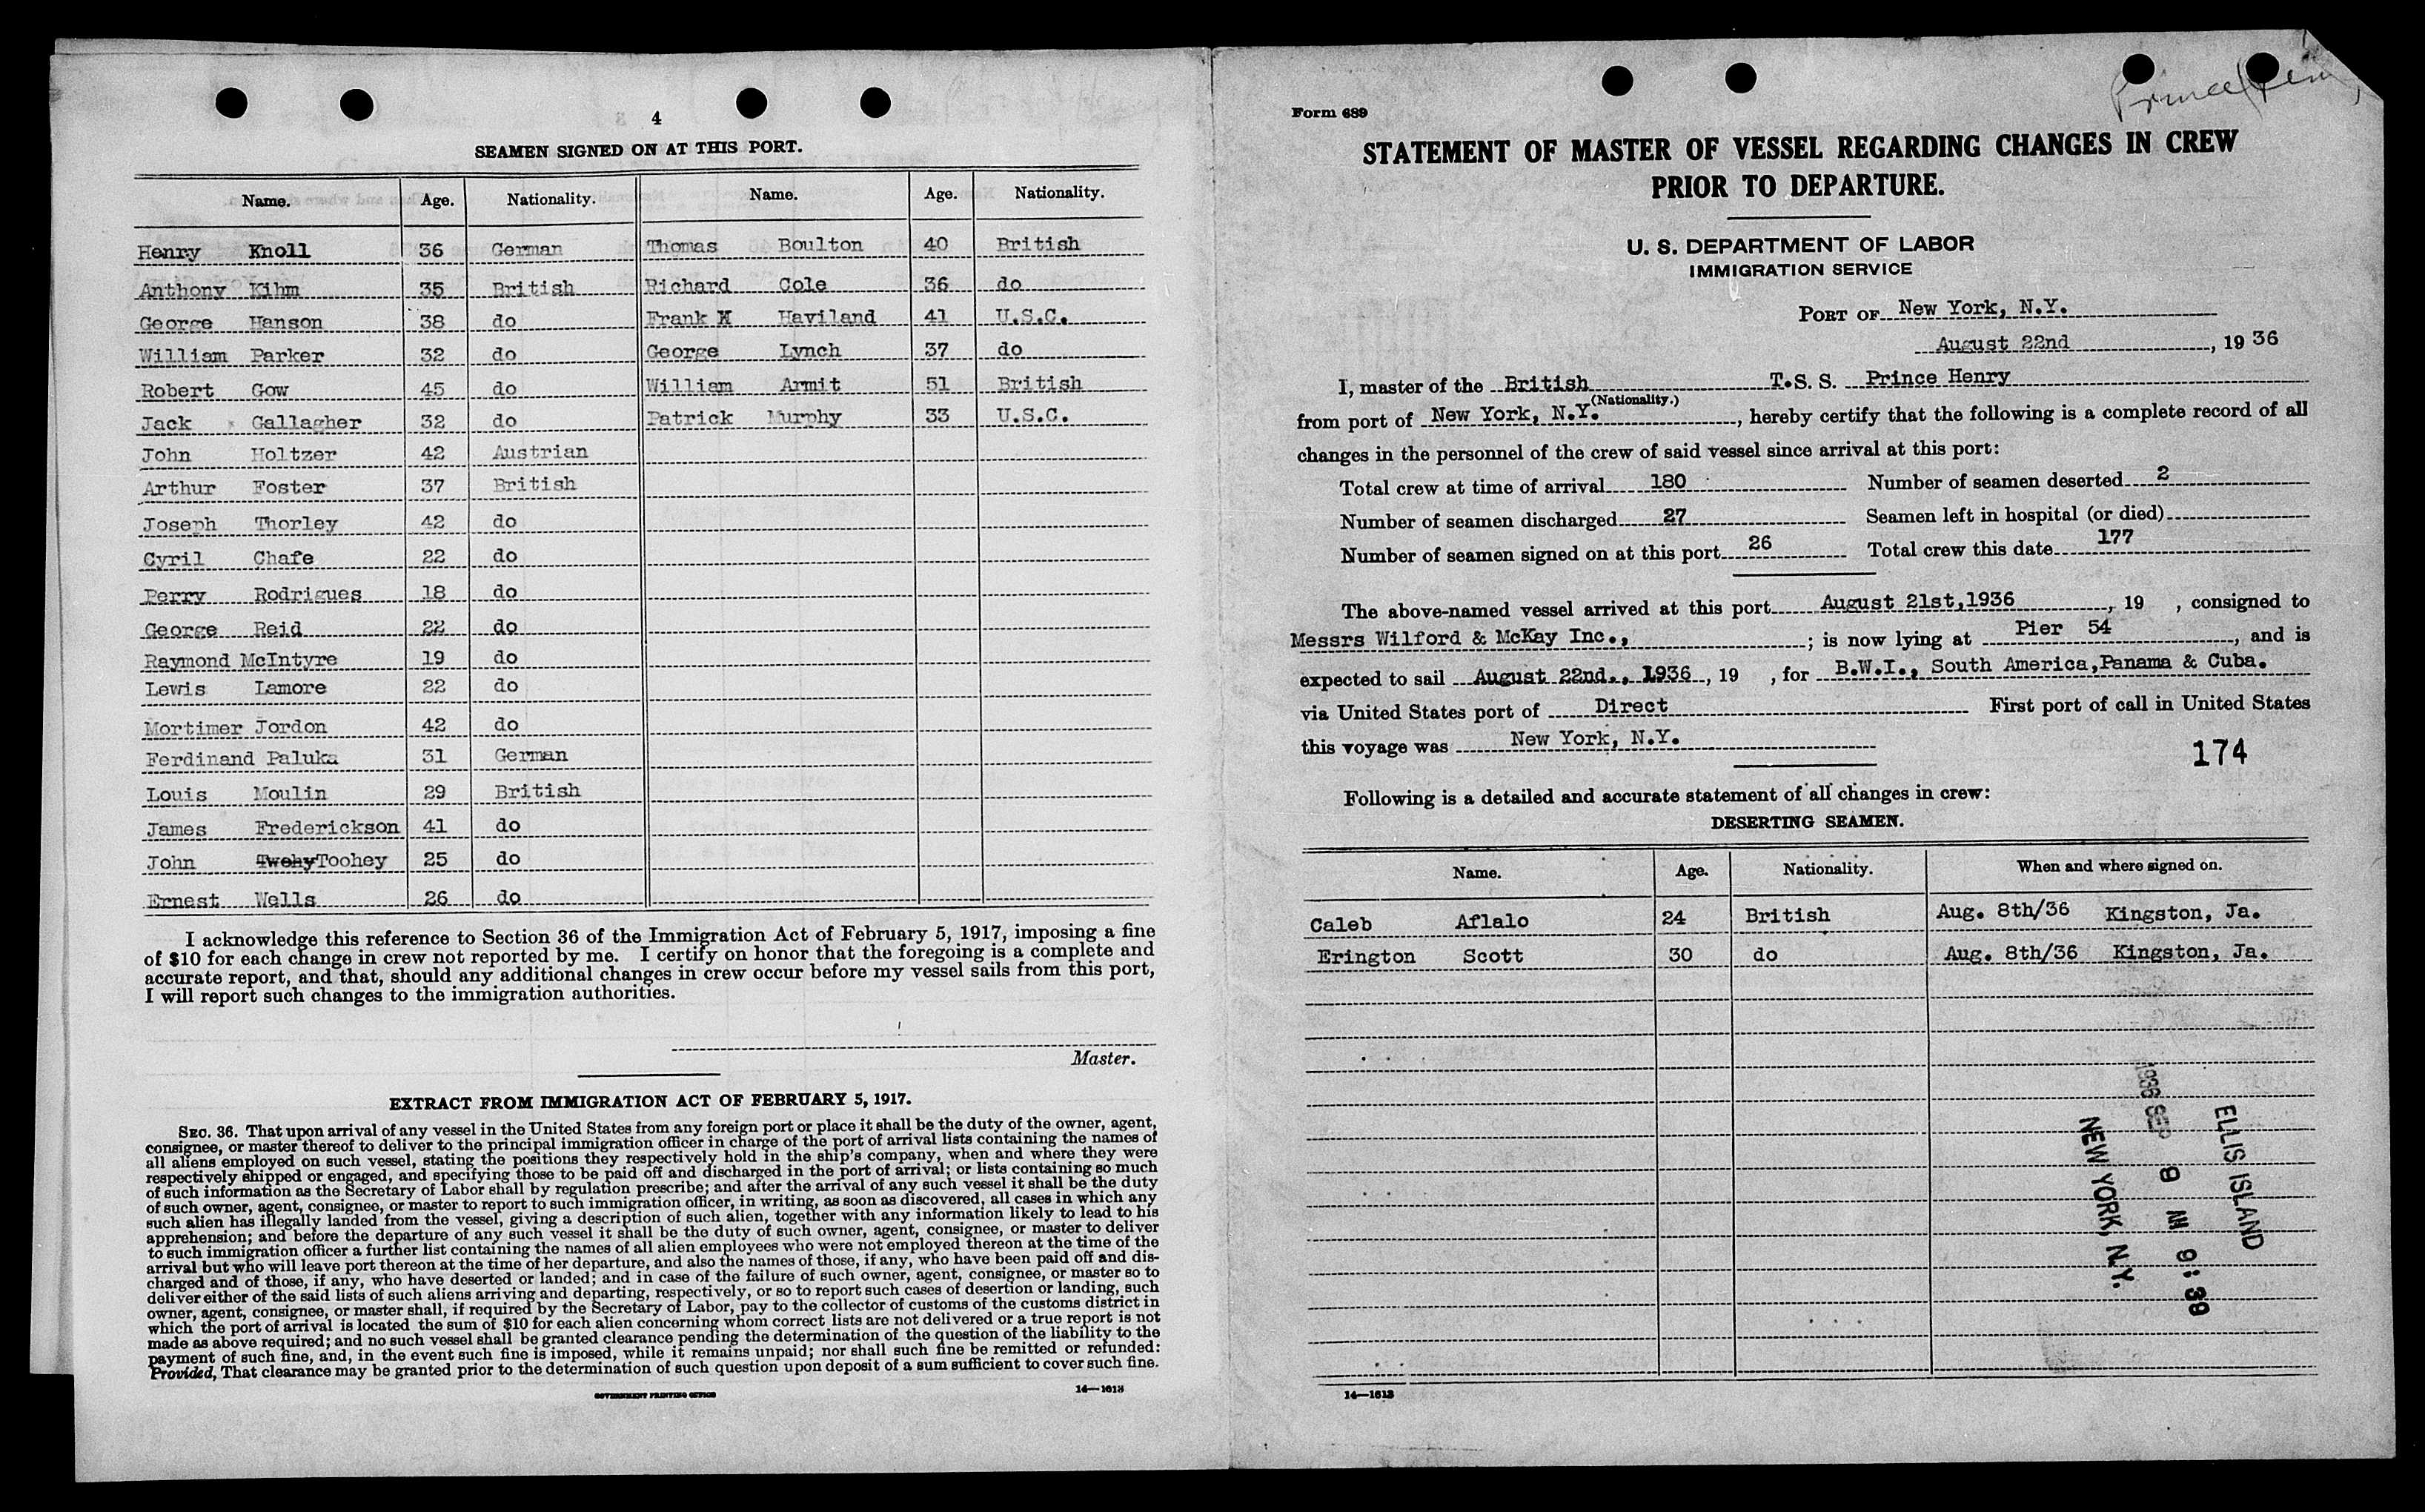 4
SEAMEN SIGNED ON AT THIS PORT.
Name. Age. Nationality. Name. Age. Nationality.
Henry Knoll 36 German Thomas Boulton 40 British
Anthony Kihm 35 British Richard Cole 36 do
George Hanson 38 do Frank X Haviland 41 U.S.C.
William Parker 32 do George Lynch 37 do
Robert Gow 45 do William Armit 51 British
Jack Gallagher 32 do Patrick Murphy 33 U.S.C.
John Holtzer 42 Austrian
Arthur Foster 37 British
Joseph Thorley 42 do
Cyril Chafe 22 do
Perry Rodrigues 18 do
George Reid 22 do
Raymond McIntyre 19 do
Lewis Lamore 22 do
Mortimer Jordon 42 do
Ferdinand Paluka 31 German
Louis Moulin 29 British
James Frederickson 41 do
John Twohy Toohey 25 do
Ernest Wells 26 do
I acknowledge this reference to Section 36 of the Immigration Act of February 5, 1917, imposing a fine
of $10 for each change in crew not reported by me. I certify on honor that the foregoing is a complete and
accurate report, and that, should any additional changes in crew occur before my vessel sails from this port,
I will report such changes to the immigration authorities.
Master.
EXTRACT FROM IMMIGRATION ACT OF FEBRUARY 5, 1917.
SEC. 36. That upon arrival of any vessel in the United States from any foreign port or place it shall be the duty of the owner, agent,
consignee, or master thereof to deliver to the principal immigration officer in charge of the port of arrival lists containing the names of
all aliens employed on such vessel, stating the positions they respectively hold in the ship's company, when and where they were
respectively shipped or engaged, and specifying those to be paid off and discharged in the port of arrival; or lists containing so much
of such information as the Secretary of Labor shall by regulation prescribe; and after the arrival of any such vessel it shall be the duty
of such owner, agent, consignee, or master to report to such immigration officer, in writing, as soon as discovered, all cases in which any
such alien has illegally landed from the vessel, giving a description of such alien, together with any information likely to lead to his
apprehension; and before the departure of any such vessel it shall be the duty of such owner, agent, consignee, or master to deliver
to such immigration officer a further list containing the names of all alien employees who were not employed thereon at the time of the
arrival but who will leave port thereon at the time of her departure, and also the names of those, if any, who have been paid off and dis-
charged and of those, if any, who have deserted or landed; and in case of the failure of such owner, agent, consignee, or master so to
deliver either of the said lists of such aliens arriving and departing, respectively, or so to report such cases of desertion or landing, such
owner, agent, consignee, or master shall, if required by the Secretary of Labor, pay to the collector of customs of the customs district in
which the port of arrival is located the sum of $10 for each alien concerning whom correct lists are not delivered or a true report is not
made as above required; and no such vessel shall be granted clearance pending the determination of the question of the liability to the
payment of such fine, and, in the event such fine is imposed, while it remains unpaid; nor shall such fine be remitted or refunded:
Provided, That clearance may be granted prior to the determination of such question upon deposit of a sum sufficient to cover such fine.
GOVERNMENT PRINTING OFFICE 14—1613
Form 689
STATEMENT OF MASTER OF VESSEL REGARDING CHANGES IN CREW
PRIOR TO DEPARTURE.
U. S. DEPARTMENT OF LABOR
IMMIGRATION SERVICE
PORT OF New York, N.Y.
August 22nd, 19 36
I, master of the British T.S. S. Prince Henry
(Nationality.)
from port of New York, N.Y., hereby certify that the following is a complete record of all
changes in the personnel of the crew of said vessel since arrival at this port:
Total crew at time of arrival 180 Number of seamen deserted 2
Number of seamen discharged 27 Seamen left in hospital (or died)
Number of seamen signed on at this port 26 Total crew this date 177
The above-named vessel arrived at this port August 21st,1936, 19 , consigned to
Messrs Wilford & McKay Inc., ; is now lying at Pier 54, and is
expected to sail August 22nd., 1936, 19 , for B.W.I., South America,Panama & Cuba.
via United States port of Direct First port of call in United States
this voyage was New York, N.Y.
174
Following is a detailed and accurate statement of all changes in crew:
DESERTING SEAMEN.
Name. Age. Nationality. When and where signed on.
Caleb Aflalo 24 British Aug. 8th/36 Kingston, Ja.
Erington Scott 30 do Aug. 8th/36 Kingston, Ja.
ELLIS ISLAND
1936 SEP 8 AM 9:39
NEW YORK, N.Y.
14—1613